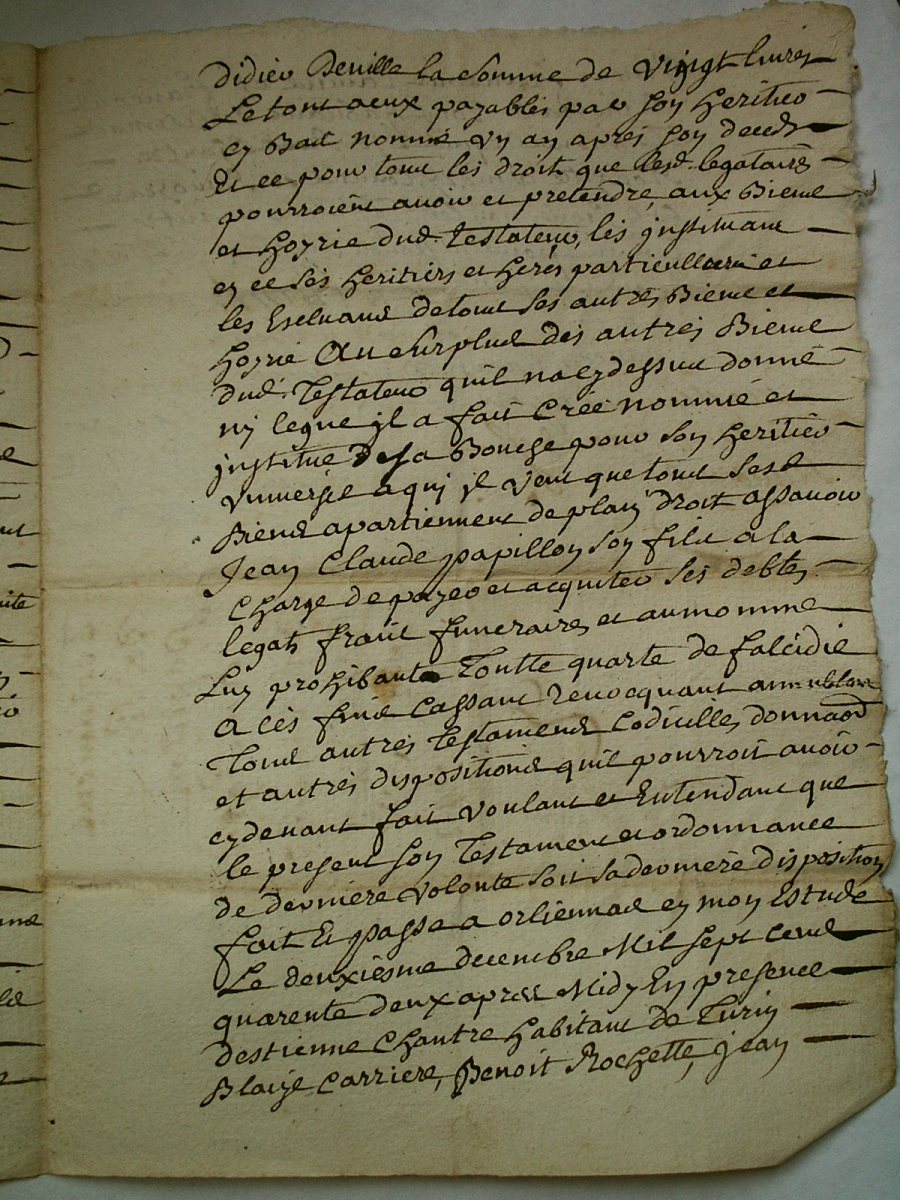 didier Deville la somme de vingt livres
Le tout a eux payables par son heritier
en bas nommé un an apres son deceds
Et ce pour tout les droit que lesd. legataires
pourroient avoir et pretendre, aux Biens
et hoyrie dud. Testateur, les instituant
en ce ses heritiers et herés particulliers et
les Excluans de tout ses autres Biens et
hoyrie Au surplus des autres Biens
dud. Testateur quil na cy dessus donné
ny legue il a fait créé nommé et
institué de sa Bouche pour son heritier
universel a qui il veut que tout sesd
Biens apartiennent de plain droit assavoir
Jean Claude papillon son fils a la
charge de payer et acquiter ses debtes
legats frais funeraires et aumosnne
Luy prohibant Toutte quarte de falcidie
A ces fins cassant revocquant annullant
Tous autres Testamens codicilles, donnaons
et autres dispositions quil pourroit avoir
cy devant fait voulant et Entendant que
le present son Testament et ordonnance
de derniere volonte soit sa derniere disposition
fait Et passé a orliennas en mon Estude
Le deuxiesme decembre Mil sept cens
quarente deux apres Midy En presence
destienne Chantre habitant de Turin
Blaise carriere, Benoit Rochette, jean